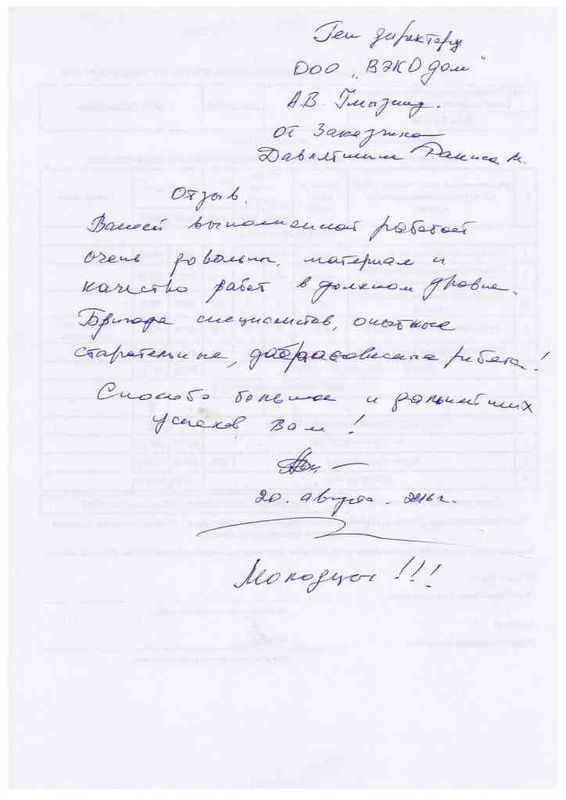 Ген директору
ООО „ВЭКО дом"
А.В.
от Заказчика
Отзыв.
Вашей выполненной работой
очень довольны, материал и
качество работ в должном уровне.
Бригада специалистов, опытные
старательные, добросовестные ребята!
Спасибо большое и дальнейших
успехов Вам!
20. августа. 2016г.
Молодцы!!!